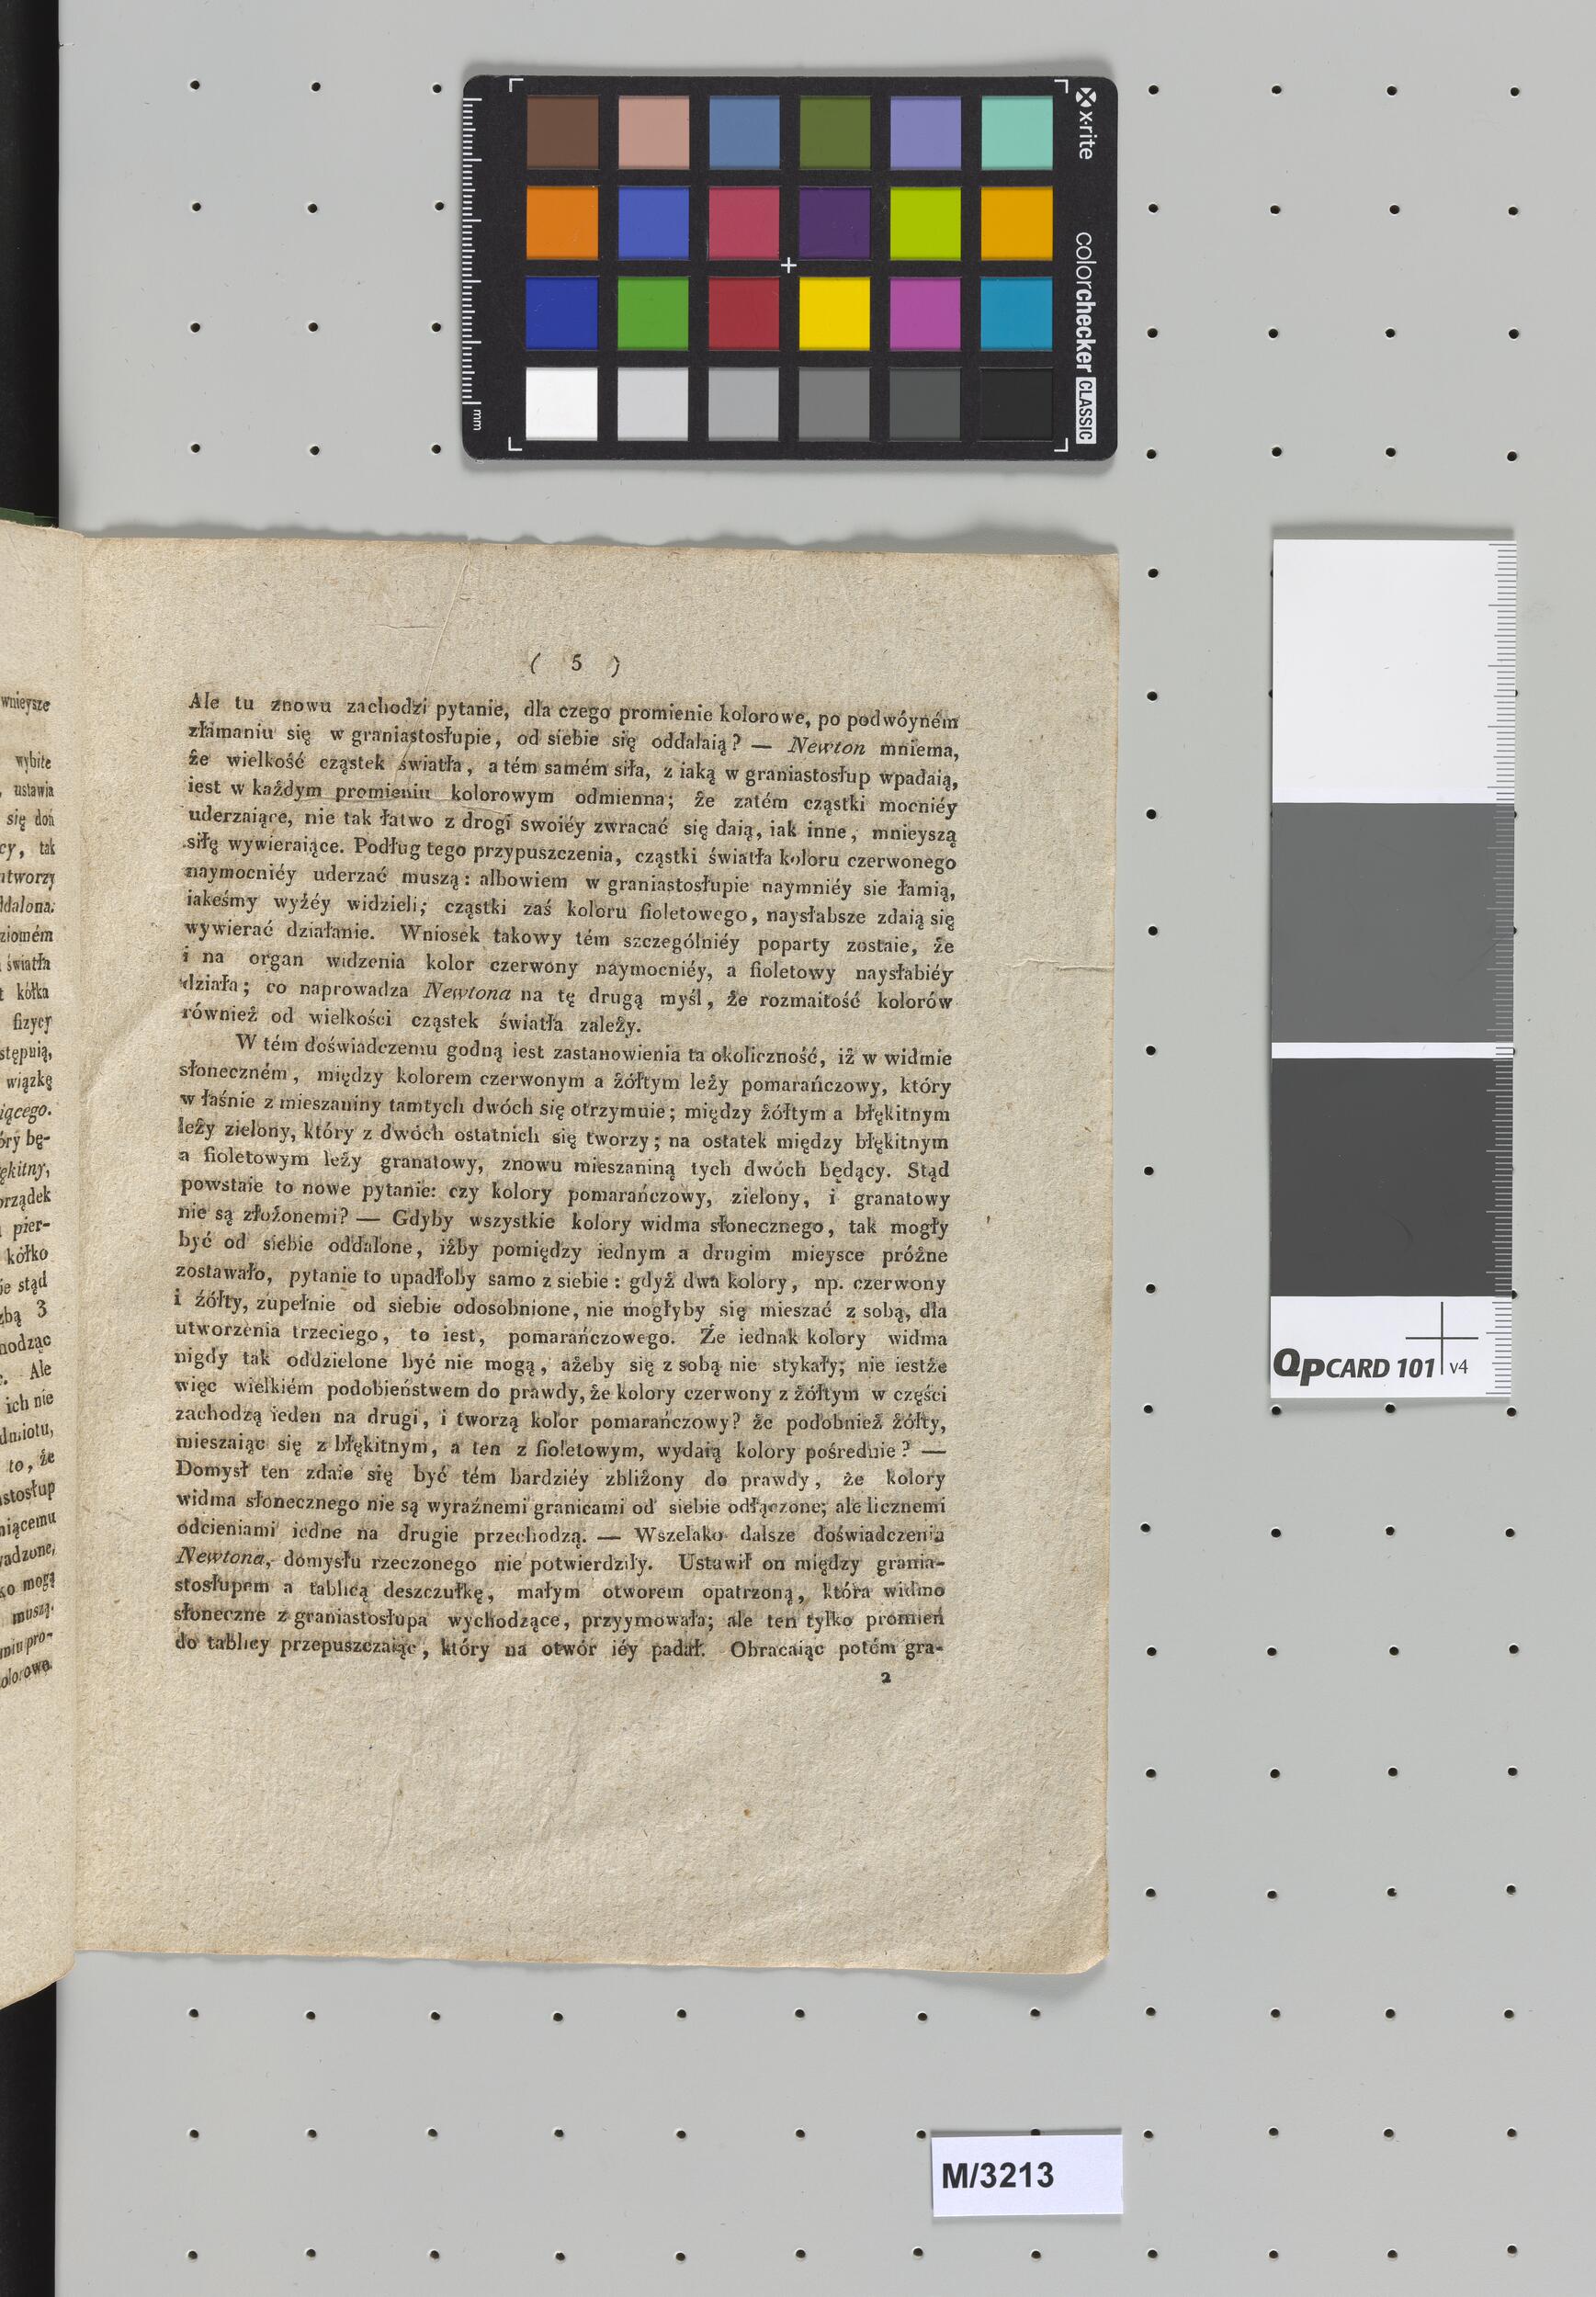 x·rite
colorchecker CLASSIC
mm
( 5 )
Ale tu znowu zachodzi pytanie, dla czego promienie kolorowe, po podwóyném
złamaniu się w graniastosłupie, od siebie się oddalaią? — Newton mniema,
że wielkość cząstek światła, a tém samém siła, z iaką w graniastosłup wpadaią,
iest w każdym promieniu kolorowym odmienna; że zatém cząstki mocniéy
uderzaiące, nie tak łatwo z drogi swoiéy zwracać się daią, iak inne, mnieyszą
siłę wywieraiące. Podług tego przypuszczenia, cząstki światła koloru czerwonego
naymocniéy uderzać muszą: albowiem w graniastosłupie naymniéy sie łamią,
iakeśmy wyżéy widzieli; cząstki zaś koloru fioletowego, naysłabsze zdaią się
wywierać działanie. Wniosek takowy tém szczególniéy poparty zostaie, że
i na organ widzenia kolor czerwony naymocniéy, a fioletowy naysłabiéy
działa; co naprowadza Newtona na tę drugą myśl, że rozmaitość kolorów
również od wielkości cząstek światła zależy.
W tém doświadczeniu godną iest zastanowienia ta okoliczność, iż w widmie
słoneczném, między kolorem czerwonym a żółtym leży pomarańczowy, który
właśnie z mieszaniny tamtych dwóch się otrzymuie; między żółtym a błękitnym
leży zielony, który z dwóch ostatnich się tworzy; na ostatek między błękitnym
a fioletowym leży granatowy, znowu mieszaniną tych dwóch będący. Stąd
powstaie to nowe pytanie: czy kolory pomarańczowy, zielony, i granatowy
nie są złożonemi? — Gdyby wszystkie kolory widma słonecznego, tak mogły
być od siebie oddalone, iżby pomiędzy iednym a drugim mieysce próżne
zostawało, pytanie to upadłoby samo z siebie: gdyż dwa kolory, np. czerwony
i żółty, zupełnie od siebie odosobnione, nie mogłyby się mieszać z sobą, dla
utworzenia trzeciego, to iest, pomarańczowego. Że iednak kolory widma
nigdy tak oddzielone być nie mogą, ażeby się z sobą nie stykały; nie iestże
więc wielkiém podobieństwem do prawdy, że kolory czerwony z żółtym w części
zachodzą ieden na drugi, i tworzą kolor pomarańczowy? że podobnież żółty,
mieszaiąc się z błękitnym, a ten z fioletowym, wydaią kolory pośrednie? —
Domysł ten zdaie się być tém bardziéy zbliżony do prawdy, że kolory
widma słonecznego nie są wyraźnemi granicami od siebie odłączone; ale licznemi
odcieniami iedne na drugie przechodzą. — Wszelako dalsze doświadczenia
Newtona, domysłu rzeczonego nie potwierdziły. Ustawił on między grania-
stosłupem a tablicą deszczułkę, małym otworem opatrzoną, która widmo
słoneczne z graniastosłupa wychodzące, przyymowała; ale ten tylko promień
do tablicy przepuszczaiąc, który na otwór iéy padał. Obracaiąc potém gra-
2
wnieysze
wybite
ustawia
się doń
cy, tak
ziomém
światła
kółka
fizycy
stępuią,
wiązkę
iącego.
óry bę-
ękitny,
orządek
pier-
kółko
stąd
3
Ale
ich nie
dmiotu,
to, że
muszą.
QpCARD 101 v4
M/3213